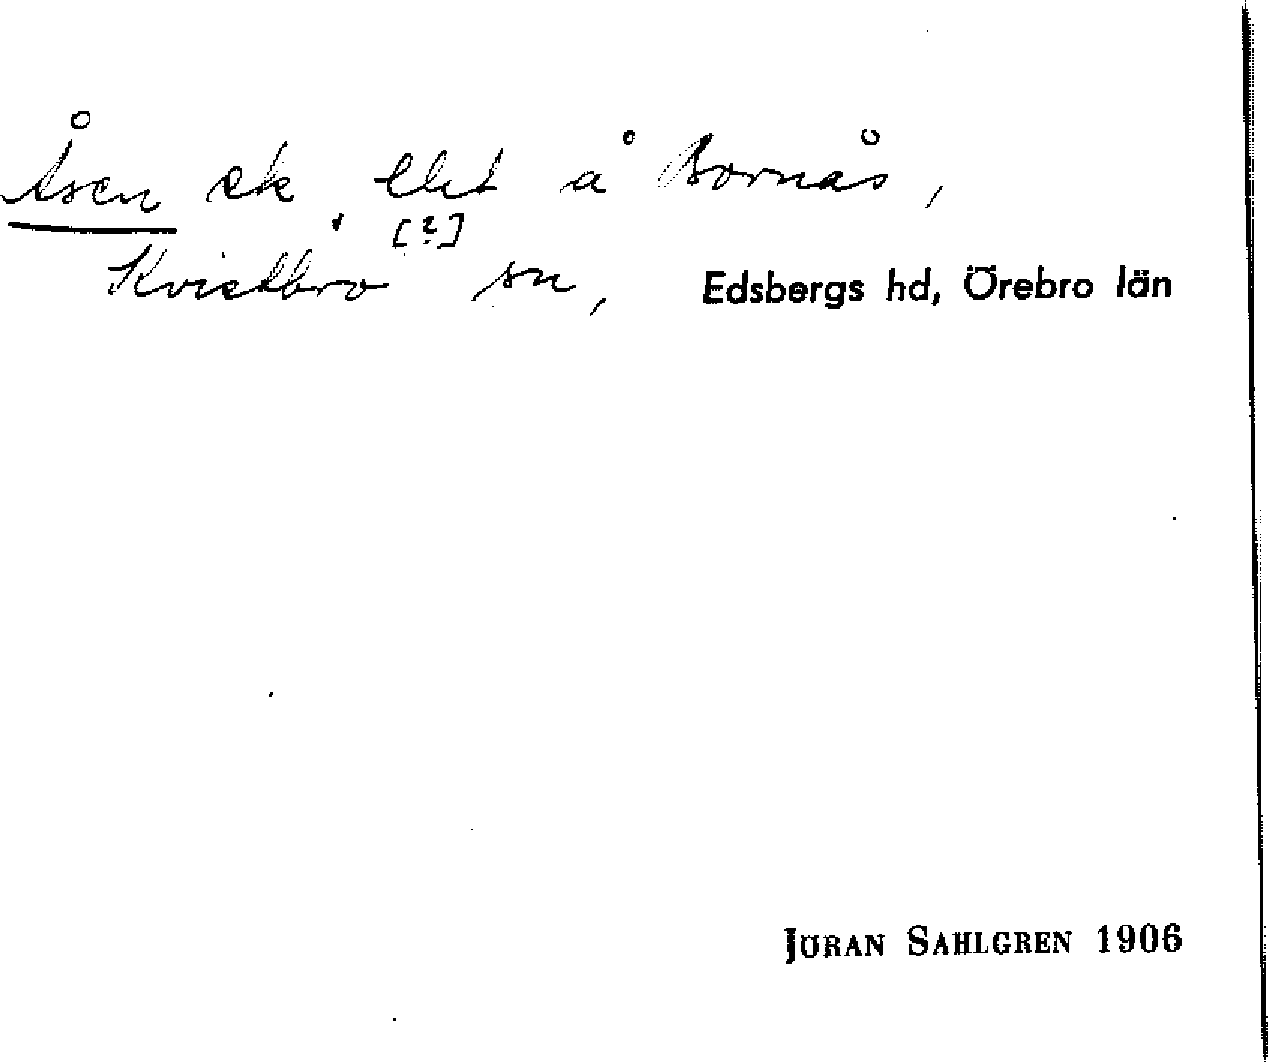 Åsen ek. å Bornås,
[?]
Kvistbro sn, Edsbergs hd, Örebro län
JÖRAN SAHLGREN 1906